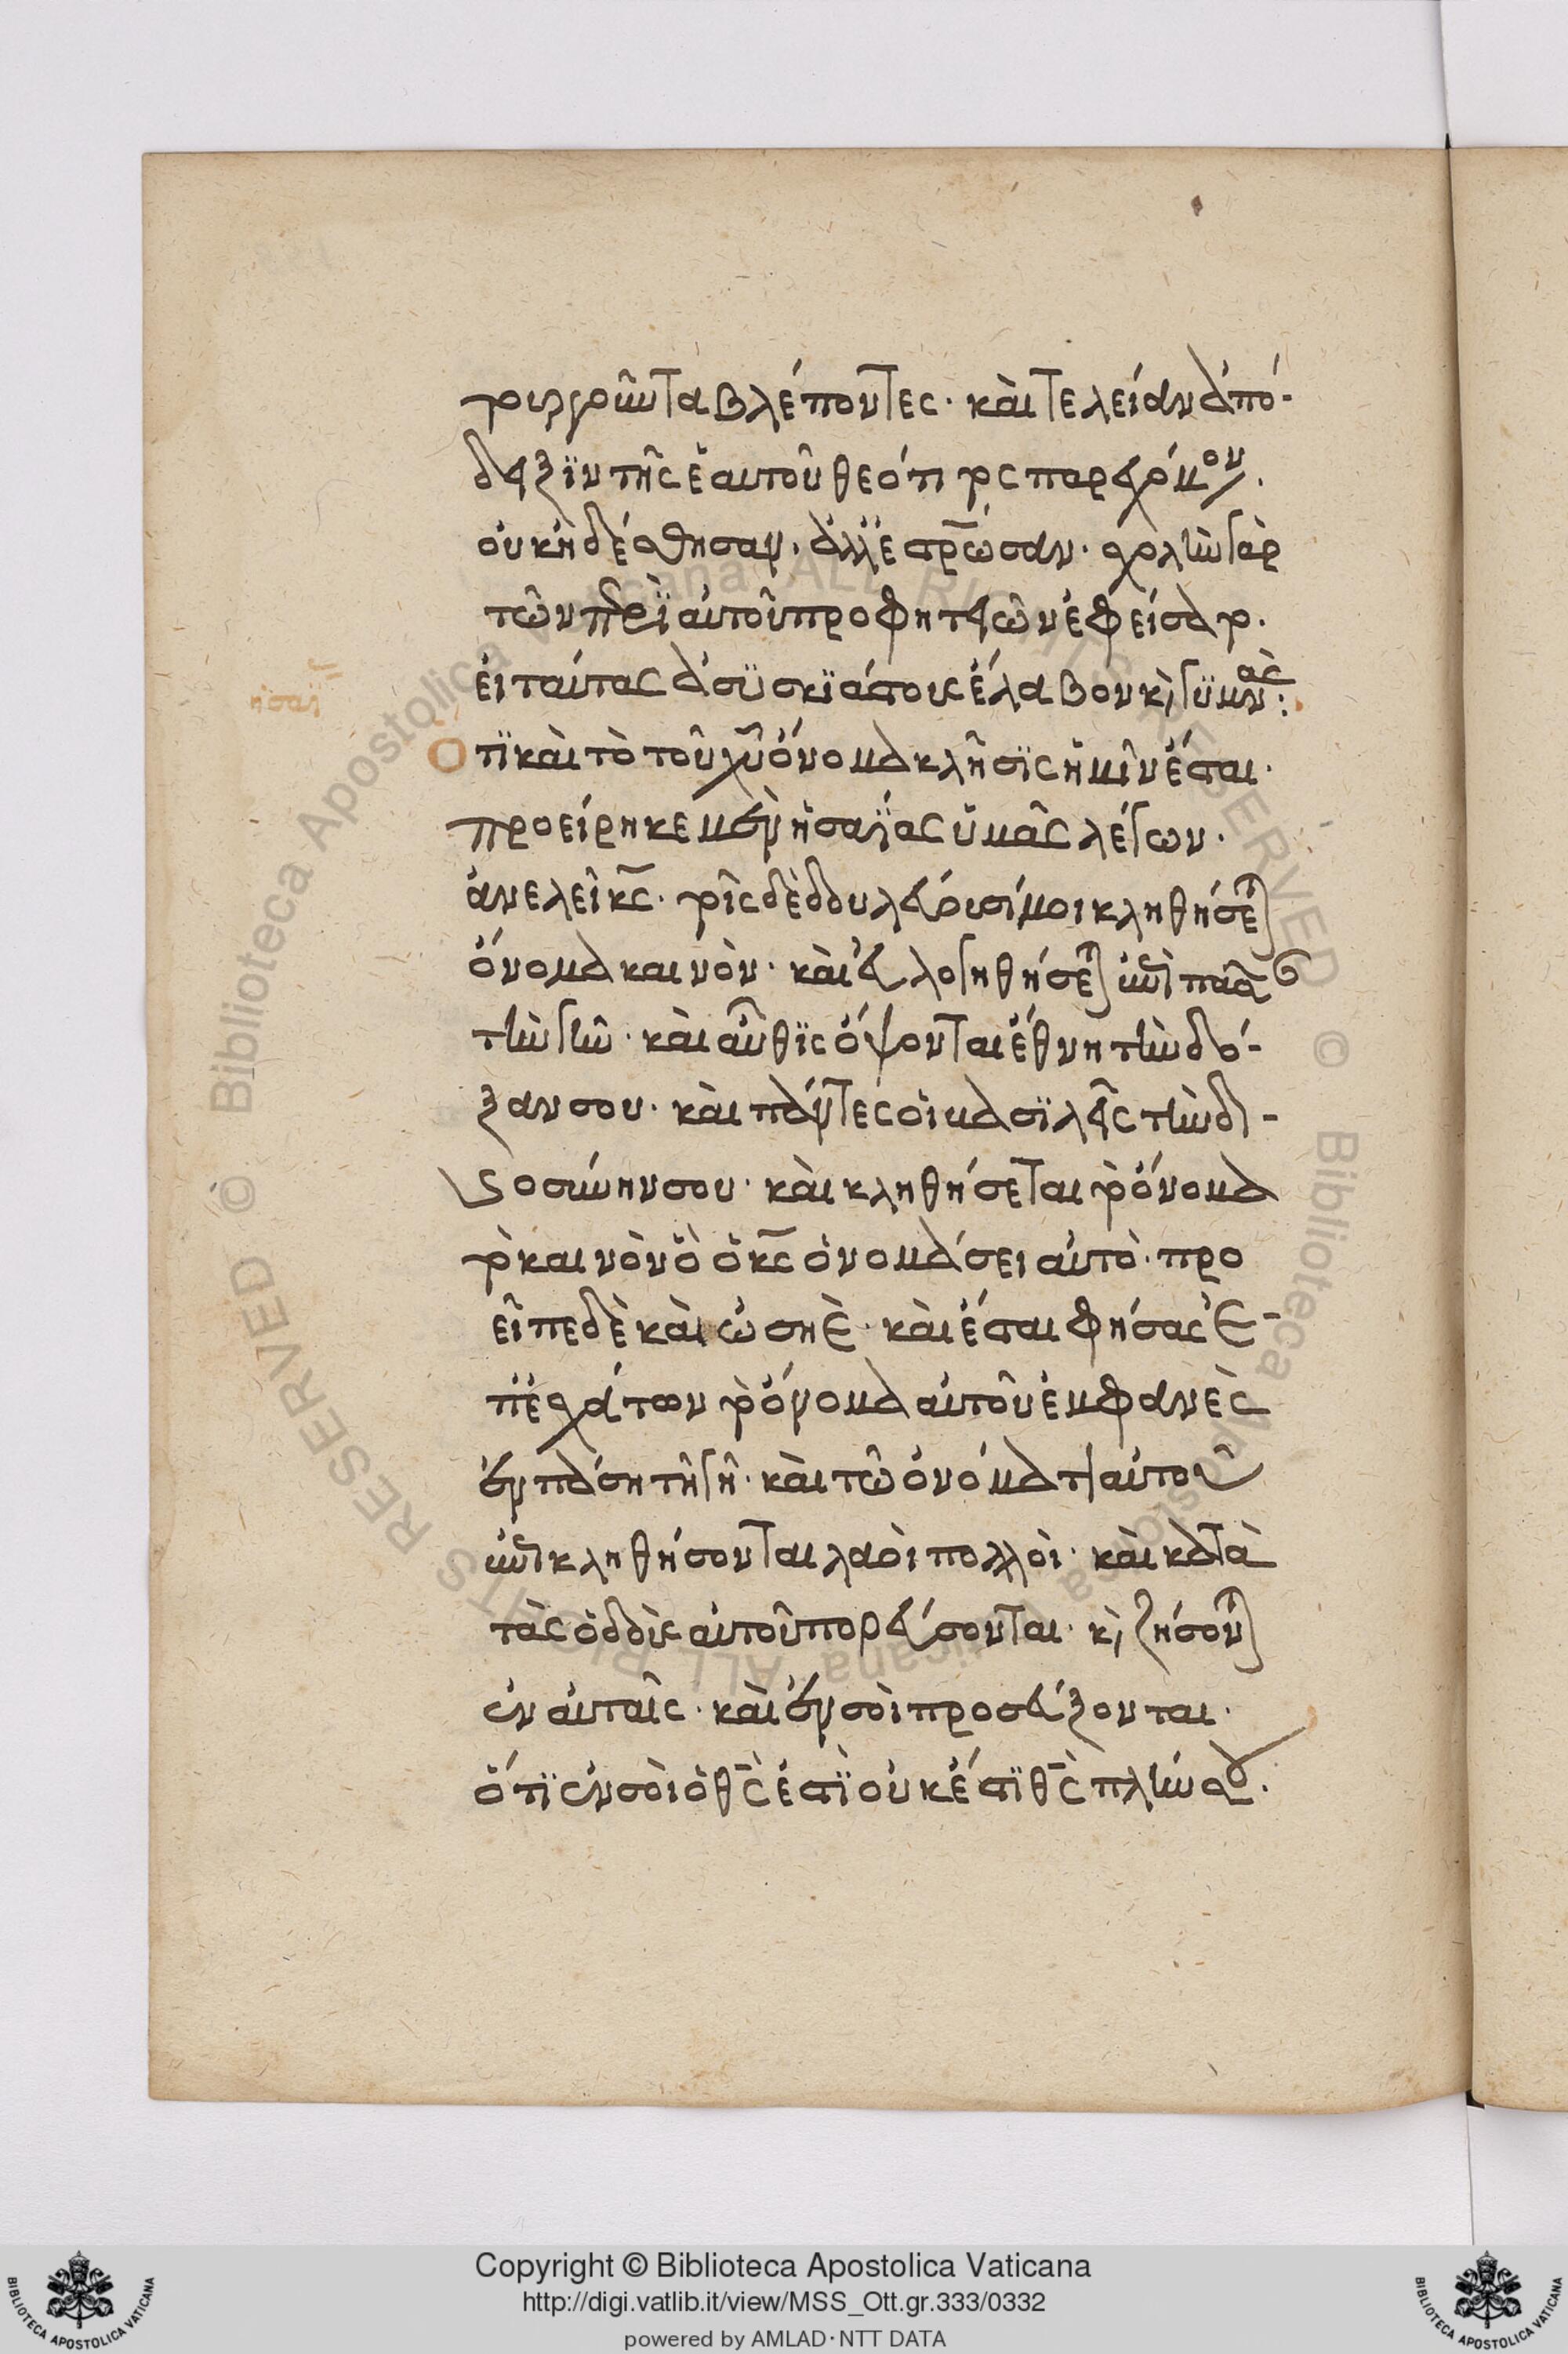 τοιγαροῦν τα βλέποντες· καὶ τελείαν ἀπό-
δειξιν τῆς ἑαυτοῦ θεότητος παρεχόμενον.
οὐκ ἠδέσθησαν. ἀλλ' ἐσταύρωσαν.
τῶν περὶ αὐτοῦ προφητειῶν ἐφείσατο.
εἰ ταύτας ἀσυσκιάστους ἔλαβον κ(αὶ) γυμνάς:
Ὅτι καὶ τὸ τοῦ χυ ὄνομα κλῆσις ἡμῖν ἔσται.
προείρηκε μὲν ἡσαΐας ὑμᾶς λέγων.
ἀνελεῖ κς. τοῖς δὲ δουλεύουσί μοι κληθήσεται
ὄνομα καινὸν. καὶ εὐλογηθήσεται ἐπὶ πᾶσαν
τὴν γῆν. καὶ αὖθις ὄψονται ἔθνη τὴν δό-
ξαν σου. καὶ πάντες οἱ βασιλεῖς τὴν δι-
καιοσύνην σου. καὶ κληθήσεται τὸ ὄνομα
τὸ καινὸν ὃ ὁ κς ὀνομάσει αὐτὸ. προ
εῖπε δὲ καὶ ὠσηὲ. καὶ ἔσται φήσας ἐ-
π' ἐσχάτων τὸ ὄνομα αὐτοῦ ἐμφανὲς
ἐν πάση τῆ γῆ. καὶ τῶ ὀνόματι αὐτοῦ
ἐπικληθήσονται λαοὶ πολλοὶ. καὶ κατὰ
τὰς ὁδοὺς αὐτοῦ πορεύσονται. κ(αὶ) ζήσονται
ἐν αὐταῖς. καὶ ἐν σοὶ προσεύξονται.
ὅτι ἐν σοὶ ὁ θς ἐστὶ οὐκ ἔστι θς πλήν σου.
Copyright © Biblioteca Apostolica Vaticana
http://digi.vatlib.it/view/MSS_Ott.gr.333/0332
powered by AMLAD·NTT DATA